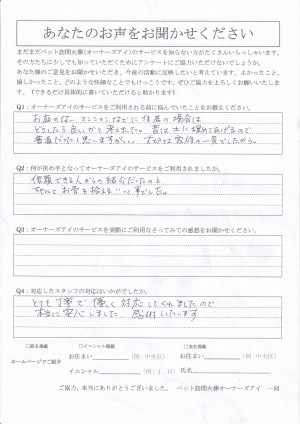 あなたのお声をお聞かせください
まだまだペット訪問火葬(オーナーズアイ)のサービスを知らない方がたくさんいらっしゃいます。
その方たちに少しでも知っていただくためにアンケートにご協力いただけないでしょうか。
あなた様のご意見をお聞かせいただき、今後の活動に反映したいと考えています。よかったこと、
嬉しかったこと、どのような些細なことでもけっこうです。ぜひ、ご協力をよろしくお願いいたします。
(できるだけ具体的に書いていただけると助かります)
Q1：オーナーズアイのサービスをご利用される前に悩んでいたことをお教えください。
お庭のない マンションなどに住居の場合は
どうしたら良いかと
昔は土に埋めてあげるので
普通だったと思いますが、、、
Q2：何が決め手となってオーナーズアイのサービスをご利用されましたか。
信頼できる人からの紹介だったのと
ちゃんとお骨を拾える!!と
Q3：オーナーズアイのサービスを実際にご利用なさってみての感想をお聞かせください。
Q4：対応したスタッフの対応はいかがでしたか。
とても丁寧で優しく対応してくれましたので
本当に安心しました。感謝いたします
□匿名掲載 □イニシャル掲載 □実名掲載
ホームページでご紹介
お住まい (例：中央区) お住まい (例：中央区)
イニシャル (例：J．H) 氏名
ご協力、本当にありがとうございました。 ペット訪問火葬オーナーズアイ 一同